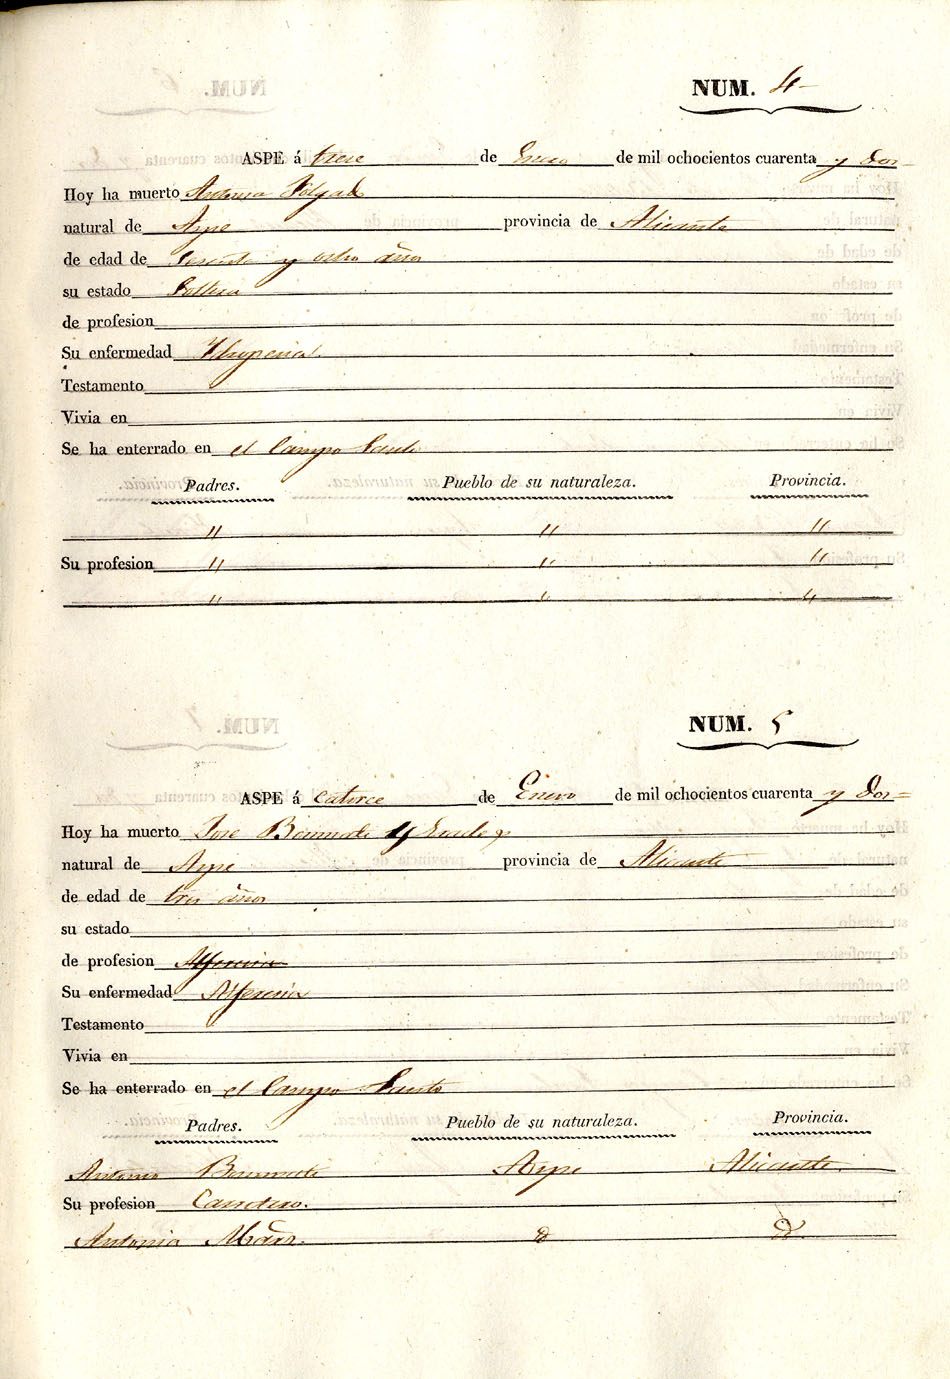 NUM. 4
ASPE á trece de Enero de mil ochocientos cuarenta y Dos
Hoy ha muerto Antonia
natural de Aspe provincia de Alicante
de edad de Sesenta y ocho años
su estado Soltera
de profesion
Su enfermedad
Testamento
Vivia en
Se ha enterrado en el Campo Santo
Padres. Pueblo de su naturaleza. Provincia.
" " "
Su profesion " " "
" " "
NUM. 5
ASPE á catorce de Enero de mil ochocientos cuarenta y Dos
Hoy ha muerto Jose
natural de Aspe provincia de Alicante
de edad de tres años
su estado
de profesion Alferecia
Su enfermedad Alferecia
Testamento
Vivia en
Se ha enterrado en el Campo Santo
Padres. Pueblo de su naturaleza. Provincia.
Antonio Aspe Alicante
Su profesion
Antonia